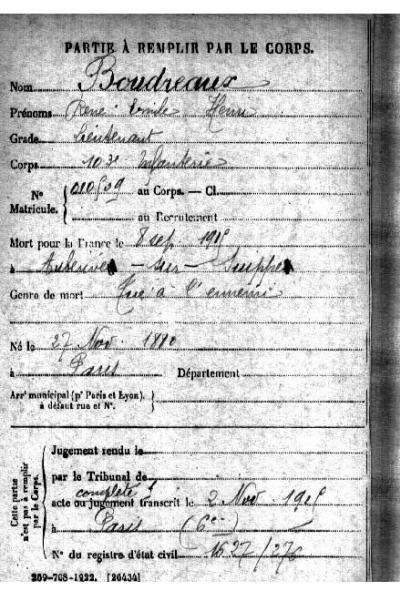 PARTIE À REMPLIR PAR LE CORPS.
Nom Boudreaux
Prénoms René Emile Henri
Grade Lieutenant
Corps 103e Infanterie
No Matricule. au Corps. — Cl.
au Recrutement
Mort pour la France le 8 sep 1915
à Auberive - sur - Suippe
Genre de mort Tué à l'ennemi
Né le 27 Nov 1880
à Paris Département
Arrt municipal (pr Paris et Lyon), à défaut rue et No.
Cette partie n'est pas à remplir par le Corps.
Jugement rendu le
par le Tribunal de
complété
acte ou jugement transcrit le 2 Nov 1915
à Paris (6e)
No du registre d'état civil 1527/276
269-708-1922. [26434]